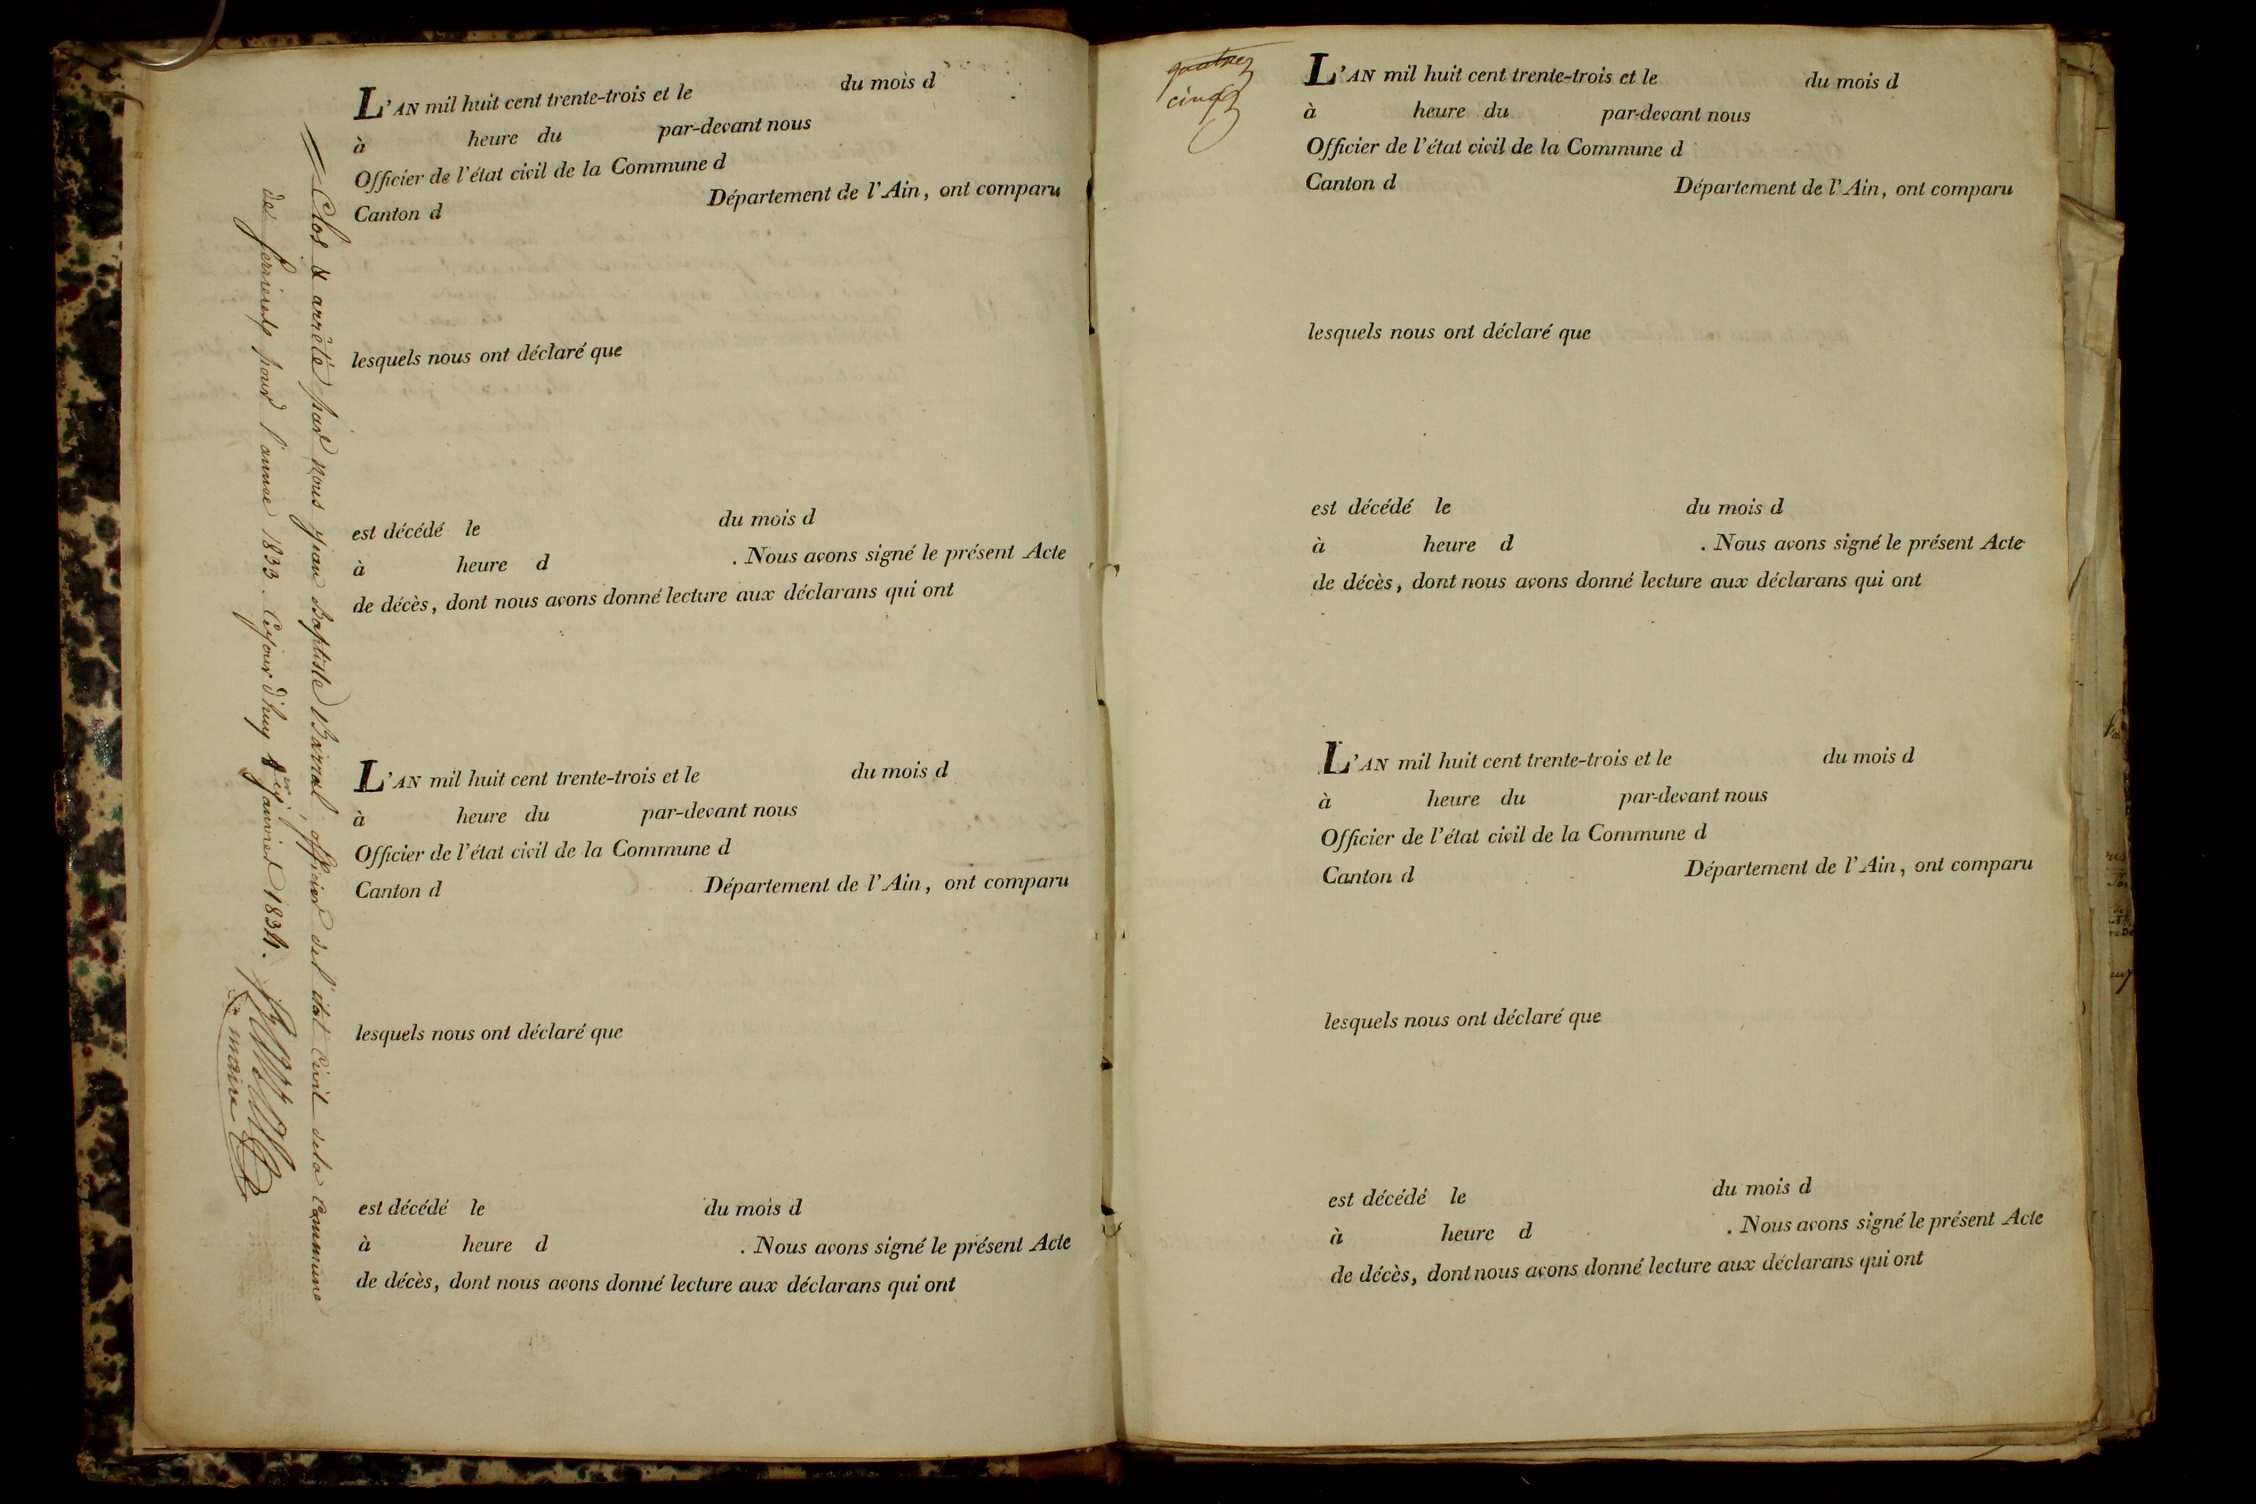 Clos & arrêté par nous jean Baptiste Barral officier del'état Civil dela Commune
de ferrieres pour l'année 1833. Cejour d'huy 1er janvier 1834.
le maire
L'AN mil huit cent trente-trois et le du mois d
à heure du par-devant nous
Officier de l'état civil de la Commune d
Canton d Département de l'Ain, ont comparu
lesquels nous ont déclaré que
est décédé le du mois d
à heure d . Nous avons signé le présent Acte
de décès, dont nous avons donné lecture aux déclarans qui ont
L'AN mil huit cent trente-trois et le du mois d
à heure du par-devant nous
Officier de l'état civil de la Commune d
Canton d Département de l'Ain, ont comparu
lesquels nous ont déclaré que
est décédé le du mois d
à heure d . Nous avons signé le présent Acte
de décès, dont nous avons donné lecture aux déclarans qui ont
quatre
cinq
L'AN mil huit cent trente-trois et le du mois d
à heure du par-devant nous
Officier de l'état civil de la Commune d
Canton d Département de l'Ain, ont comparu
lesquels nous ont déclaré que
est décédé le du mois d
à heure d . Nous avons signé le présent Acte
de décès, dont nous avons donné lecture aux déclarans qui ont
L'AN mil huit cent trente-trois et le du mois d
à heure du par-devant nous
Officier de l'état civil de la Commune d
Canton d Département de l'Ain, ont comparu
lesquels nous ont déclaré que
est décédé le du mois d
à heure d . Nous avons signé le présent Acte
de décès, dont nous avons donné lecture aux déclarans qui ont